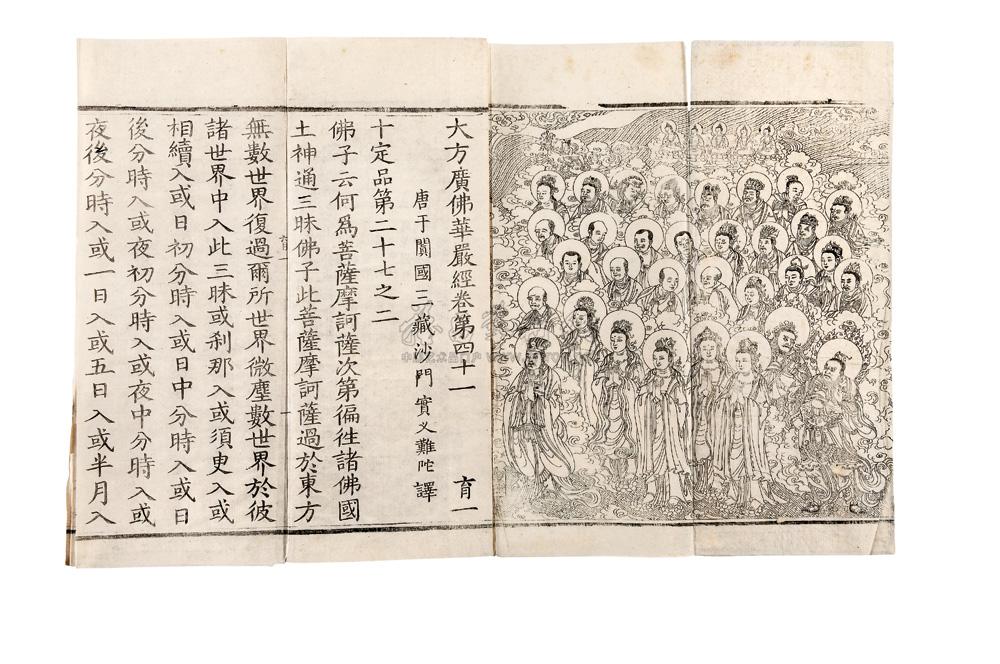 大方廣佛華嚴經卷第四十一 育一
唐于闐國三藏沙門實叉難陀 譯
十定品第二十七之二
佛子云何為菩薩摩訶薩次第徧徃諸佛國
土神通三昧佛子此菩薩摩訶薩過於東方
無數世界復過爾所世界微塵數世界於彼
諸世界中入此三昧或刹那入或須臾入或
相續入或日初分時入或日中分時入或日
後分時入或夜初分時入或夜中分時入或
夜後分時入或一日入或五日入或半月入
育一